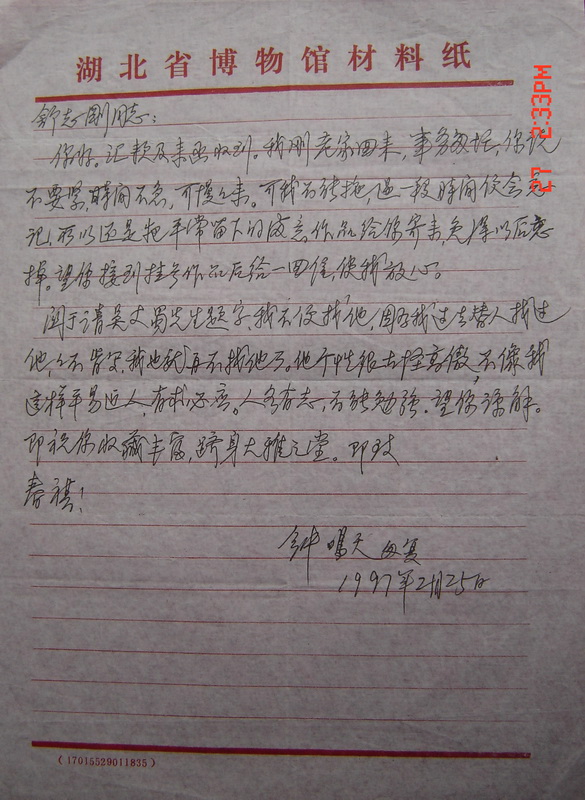 湖北省博物馆材料纸
舒志刚同志:
你好。汇款及来函收到。我刚老家回来,事务多忙,你说
不要紧,时间不急,可慢慢来。可我不能拖,过一段时间便会忘
记,所以还是把平常留下的满意作品给你寄来,免得以后忘
掉。望你接到挂号作品后给一回信,使我放心。
关于请吴丈蜀先生题字,我不便找他,因为我过去替人找过
他,他不肯写,我也就再不找他了。他个性很古怪高傲,不像我
这样平易近人,有求必应。人各有志,不能勉强。望你谅解。
即祝你收藏丰富,跻身大雅之堂。即致
春祺!
钟鸣天 函复
1997年2月25日
(17015529011835)
27 2:33PM